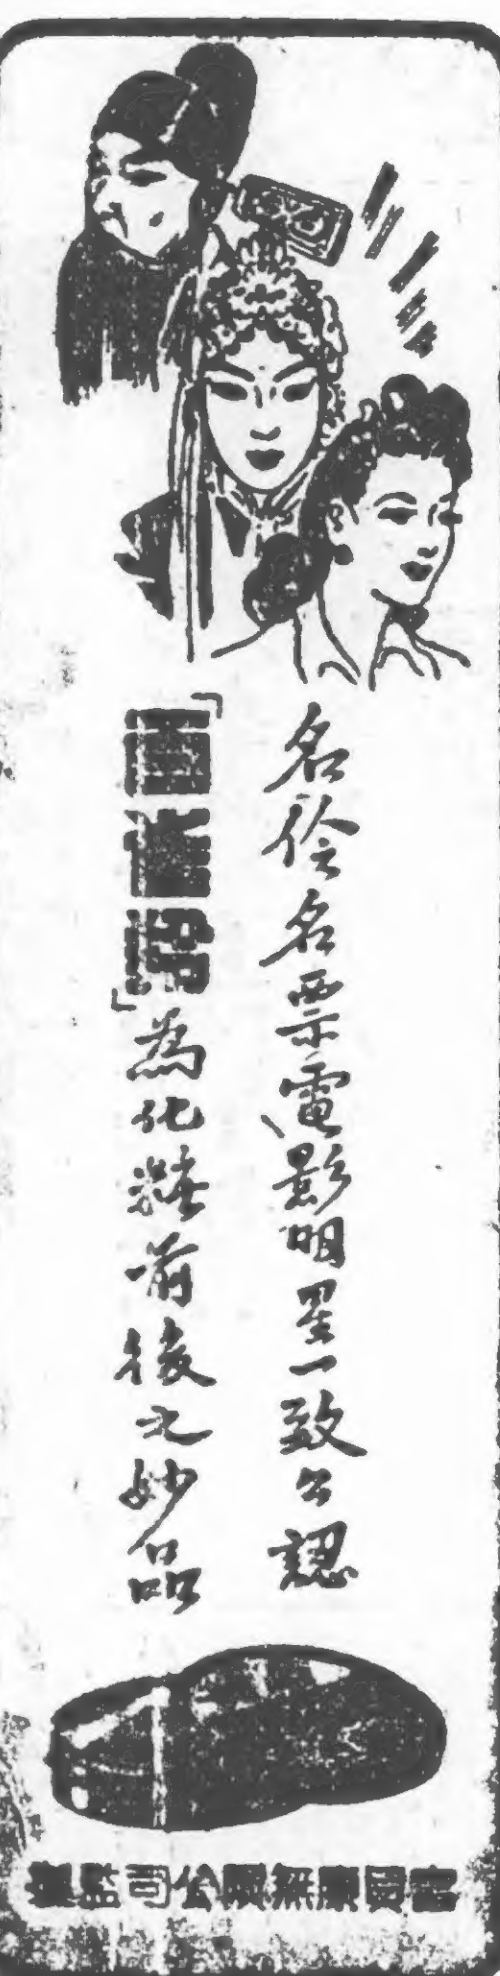 名伶名票電影明星一致公認
「百雀羚」為化粧前後之妙品
富貝康無限公司監製